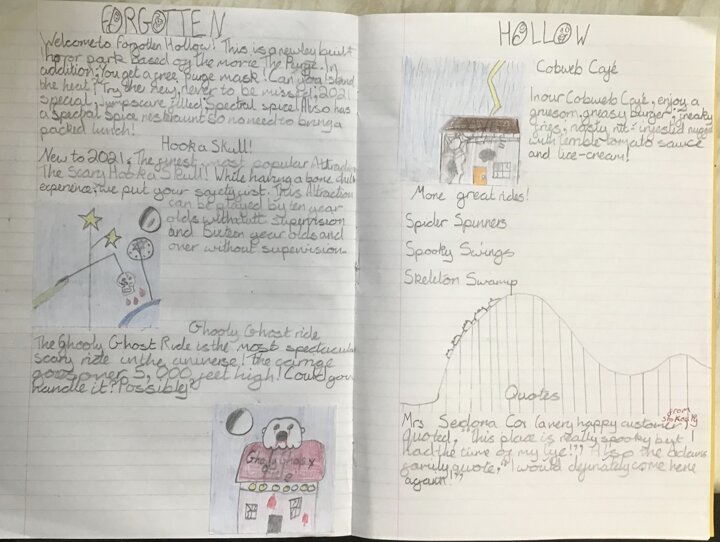 FORGOTTEN
Welcome to Forgotten Hollow! This is a newley built
horror park based of the movie The Purge. In
addition, You get a free, purge mask! Can you stand
the heat? Try the new, never to be missed, 2021
special, Jumpscare filled, Spectral spice! Also has
a spectral spice restraunt so no need to bring a
packed lunch!
Hook a Skull!
New to 2021, The finest, most popular Attraction,
The Scary Hook a Skull! While having a bone chill
experience, we put your safety first. This Attraction
can be played by ten year
olds without supervision
and year olds and
over without supervision.
Ghooly Ghost ride
The Ghooly Ghost Ride is the most spectacular
scary ride in the universe! the carrige
goes over 5,000 feet high! Could you
handle it? Possibly?
HOLLOW
Cobweb Café
In our Cobweb Café, enjoy a
gruesom, greasy burger, freaky
fries, nasty rat-injested nugget
with terrible tomato sauce
and lice-cream!
More great rides!
Spider Spinners
Spooky Swings
Skeleton Swamp
Quotes
from
Mrs Sedona Cox (a very happy customer)
quoted, "this place is really spooky but I
had the time of my life!?" Also the adams
family quote, "I would definately come here
again!"